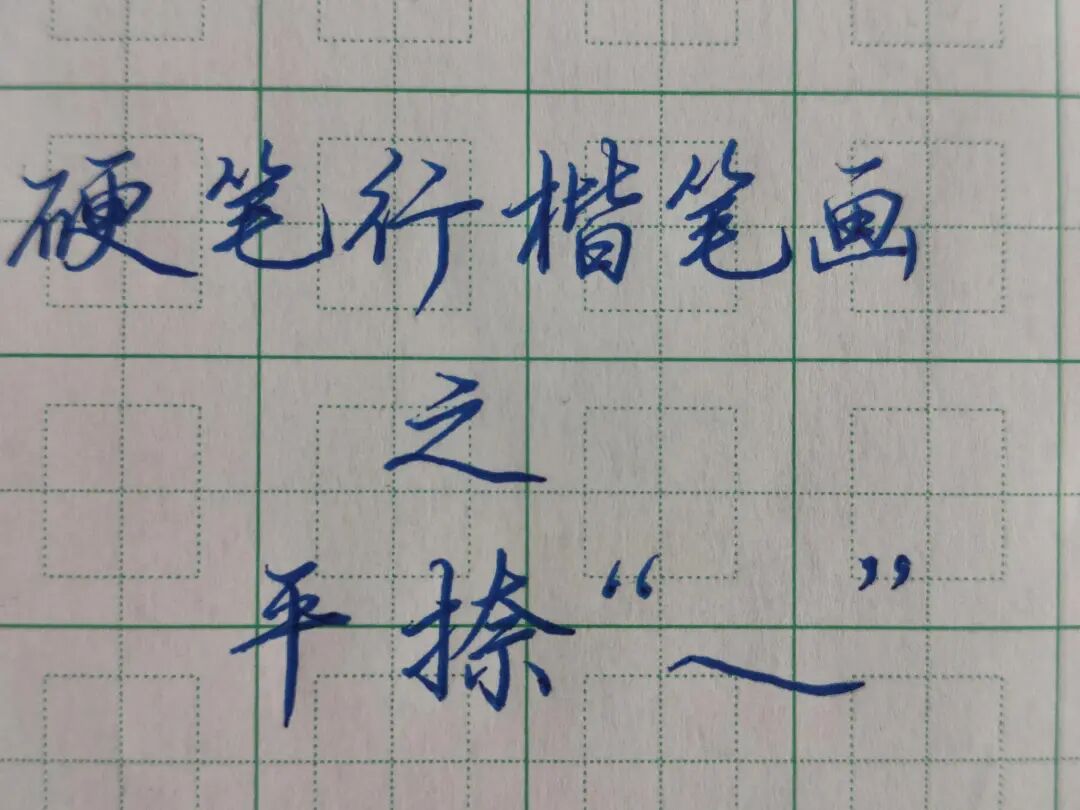 硬笔行楷笔画
之
平捺“㇏”